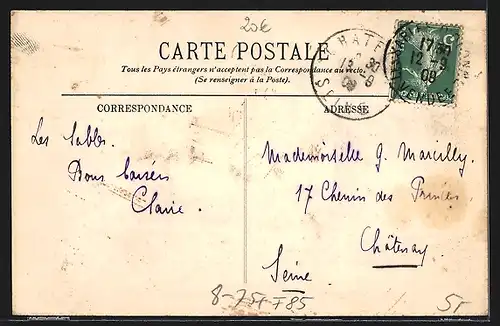 20€
CARTE POSTALE
Tous les Pays étrangers n'acceptent pas la Correspondance au recto.
(Se renseigner à la Poste).
CORRESPONDANCE
ADRESSE
Les Sables.
Bons baisers
Claire.
Mademoiselle G. Marcilly.
17 Chemin des Princes
Châtenay
Seine
17
12 -9
09
8-75
F85
5